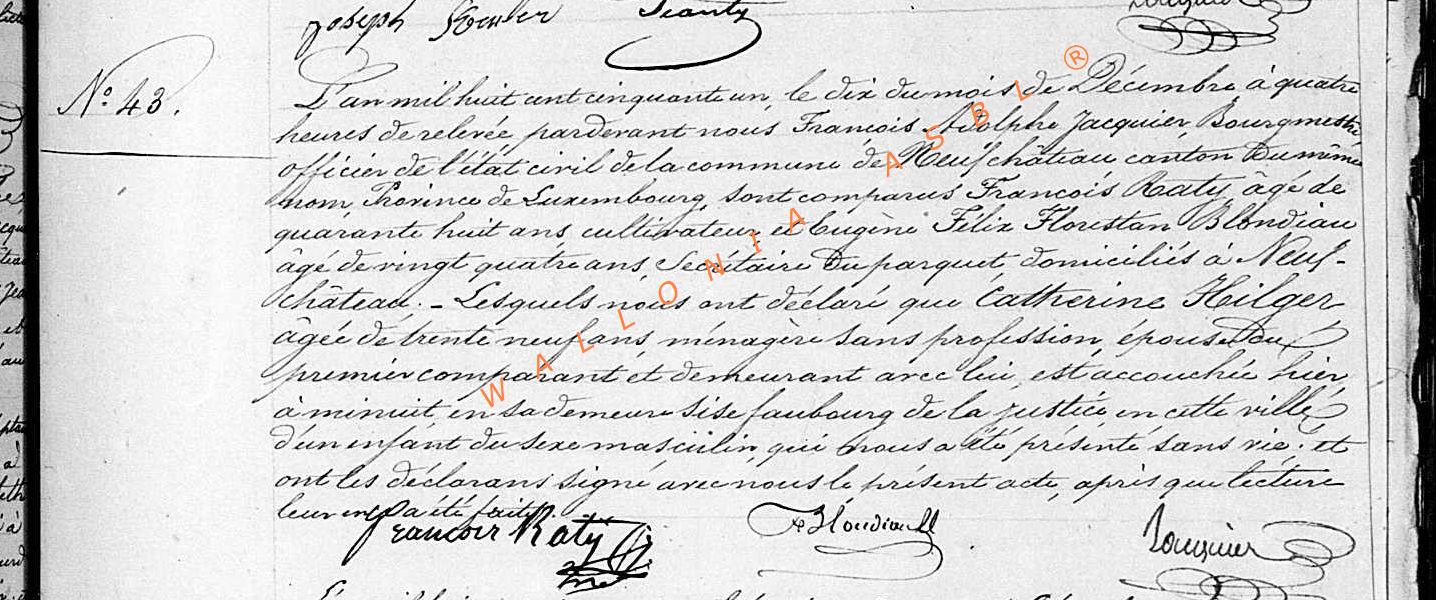 Joseph
N.º 43.
L'an mil huit cent cinquante un, le dix du mois de Décembre à quatre
heures de relevée, pardevant nous François Adolphe Jacquier, Bourgmestre
officier de l'état civil de la commune de Neufchâteau canton du même
nom, Province de Luxembourg, sont comparus François Raty, âgé de
quarante huit ans cultivateur, et Eugène Félix Florestan Blondiau
âgé de vingt quatre ans, Secrétaire du parquet, domiciliés à Neuf-
château. - Lesquels nous ont déclaré que Catherine Hilger,
âgée de trente neuf ans, ménagère sans profession, épouse du
premier comparant et demeurant avec lui, est accouchée hier,
à minuit, en sa demeure sise faubourg de la justice en cette ville
d'un enfant du sexe masculin, qui nous a été présenté sans vie; et
ont les déclarans signé avec nous le présent acte, après que lecture
leur en a été faite.
François Raty
Blondiau
Jacquier
WALLONIA ASBL ®